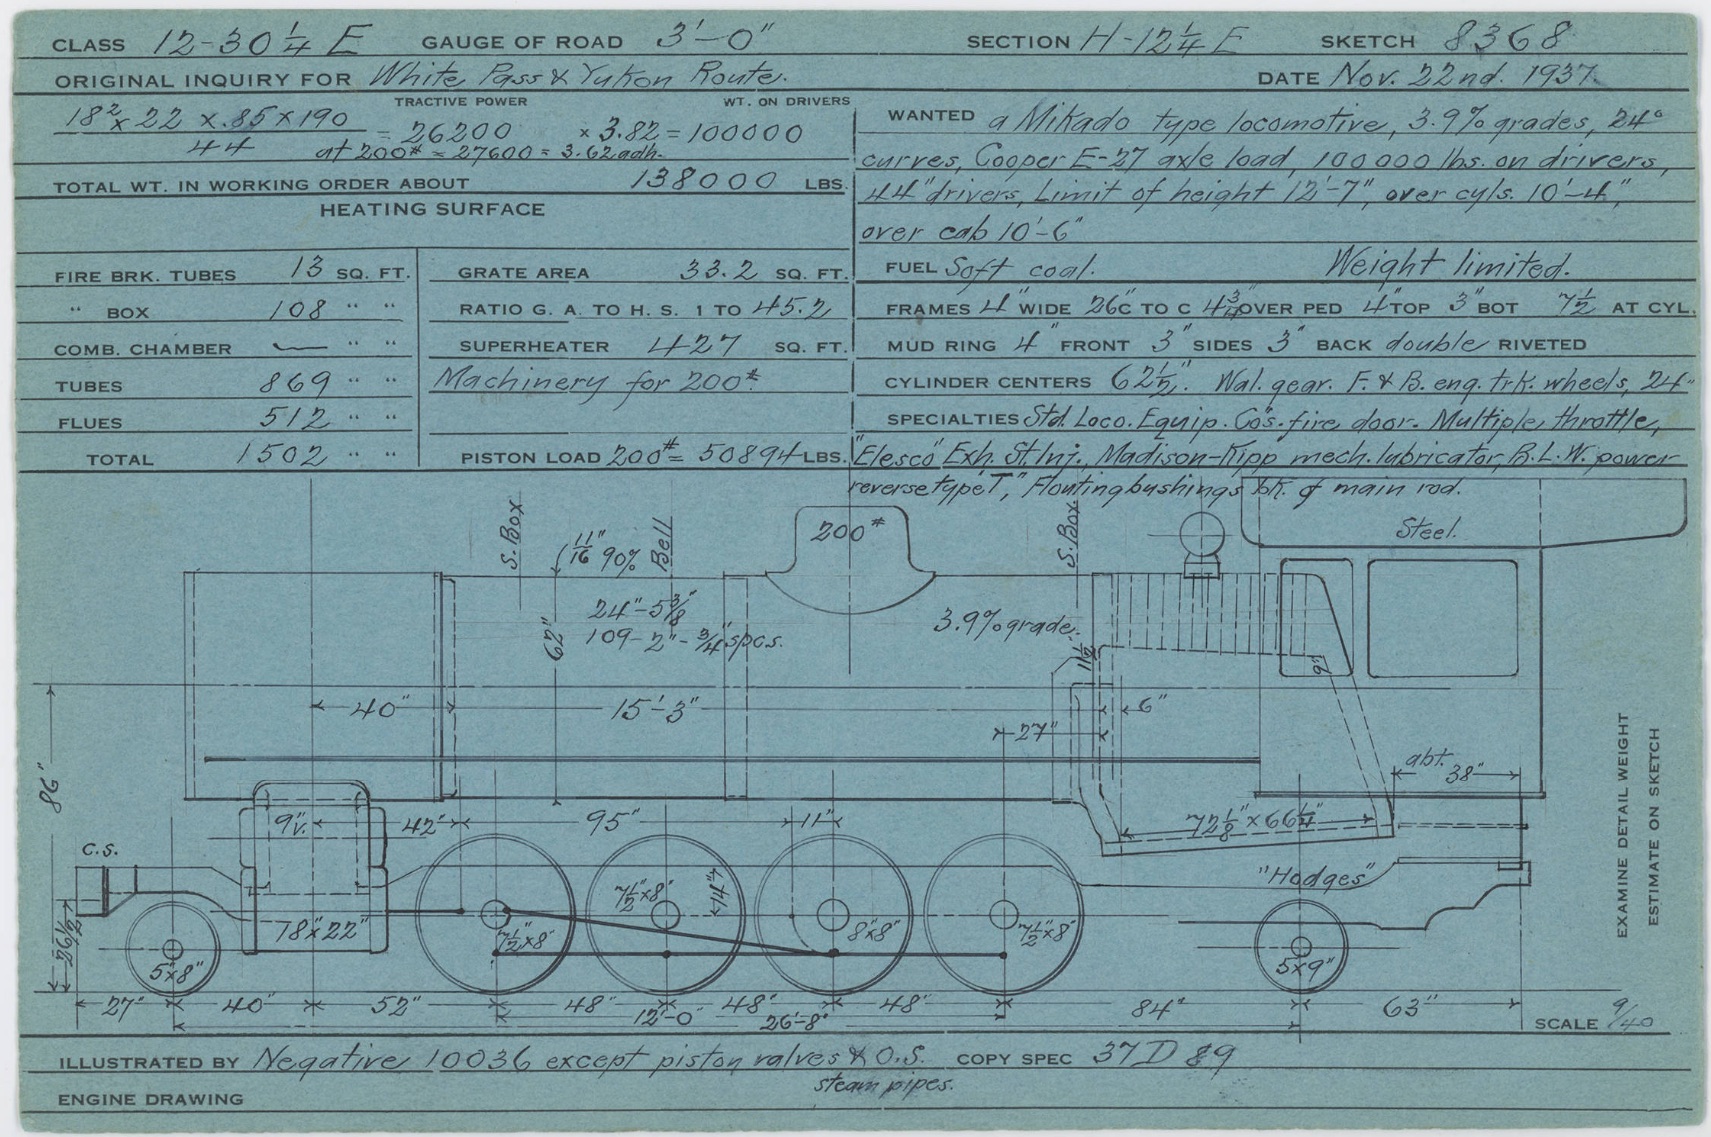 CLASS 12-30 1/4 E GAUGE OF ROAD 3'-0" SECTION H-12 1/4 E SKETCH 8368
ORIGINAL INQUIRY FOR White Pass & Yukon Route. DATE Nov. 22nd. 1937.
TRACTIVE POWER WT. ON DRIVERS
18² x 22 x .85 x 190 / 44 = 26200 x 3.82 = 100000
at 200# = 27600 = 3.62 adh.
TOTAL WT. IN WORKING ORDER ABOUT 138000 LBS.
HEATING SURFACE
FIRE BRK. TUBES 13 SQ. FT.
" BOX 108 " "
COMB. CHAMBER — " "
TUBES 869 " "
FLUES 512 " "
TOTAL 1502 " "
GRATE AREA 33.2 SQ. FT.
RATIO G. A. TO H. S. 1 TO 45.2
SUPERHEATER 427 SQ. FT.
Machinery for 200#
PISTON LOAD 200# = 50894 LBS.
WANTED a Mikado type locomotive, 3.9% grades, 24°
curves, Cooper E-27 axle load, 100000 lbs. on drivers,
44" drivers, Limit of height 12'-7", over cyls. 10'-4",
over cab 10'-6"
FUEL Soft coal. Weight limited.
FRAMES 4" WIDE 26" C TO C 4 3/4" OVER PED 4" TOP 3" BOT 7 1/2 AT CYL.
MUD RING 4" FRONT 3" SIDES 3" BACK double RIVETED
CYLINDER CENTERS 62 1/2". Wal. gear. F. & B. eng. trk. wheels, 24"
SPECIALTIES Std. Loco. Equip. Co's. fire door. Multiple throttle,
"Elesco" Exh. St. Inj., Madison-Kipp mech. lubricator, B.L.W. power
reverse type T," Floating bushings bk. of main rod.
S. Box
11/16" 90%
Bell
200#
S. Box
Steel.
24"-5 3/8"
109-2"-3/4" spcs.
62"
3.9% grade.
11 1/2"
9"
40"
15'-3"
6"
27"
86"
abt. 38"
9"v.
42"
95"
11"
72 1/8" x 66 1/4"
C.S.
"Hodges"
26 1/2"
18" x 22"
7 1/2" x 8"
7 1/2" x 8"
14"
8" x 8"
7 1/2" x 8"
5" x 8"
5" x 9"
27" 40" 52" 48" 48" 48" 84" 63"
12'-0" 26'-8"
EXAMINE DETAIL WEIGHT
ESTIMATE ON SKETCH
SCALE 9/40
ILLUSTRATED BY Negative 10036 except piston valves & O.S. COPY SPEC 37 D 89
steam pipes.
ENGINE DRAWING